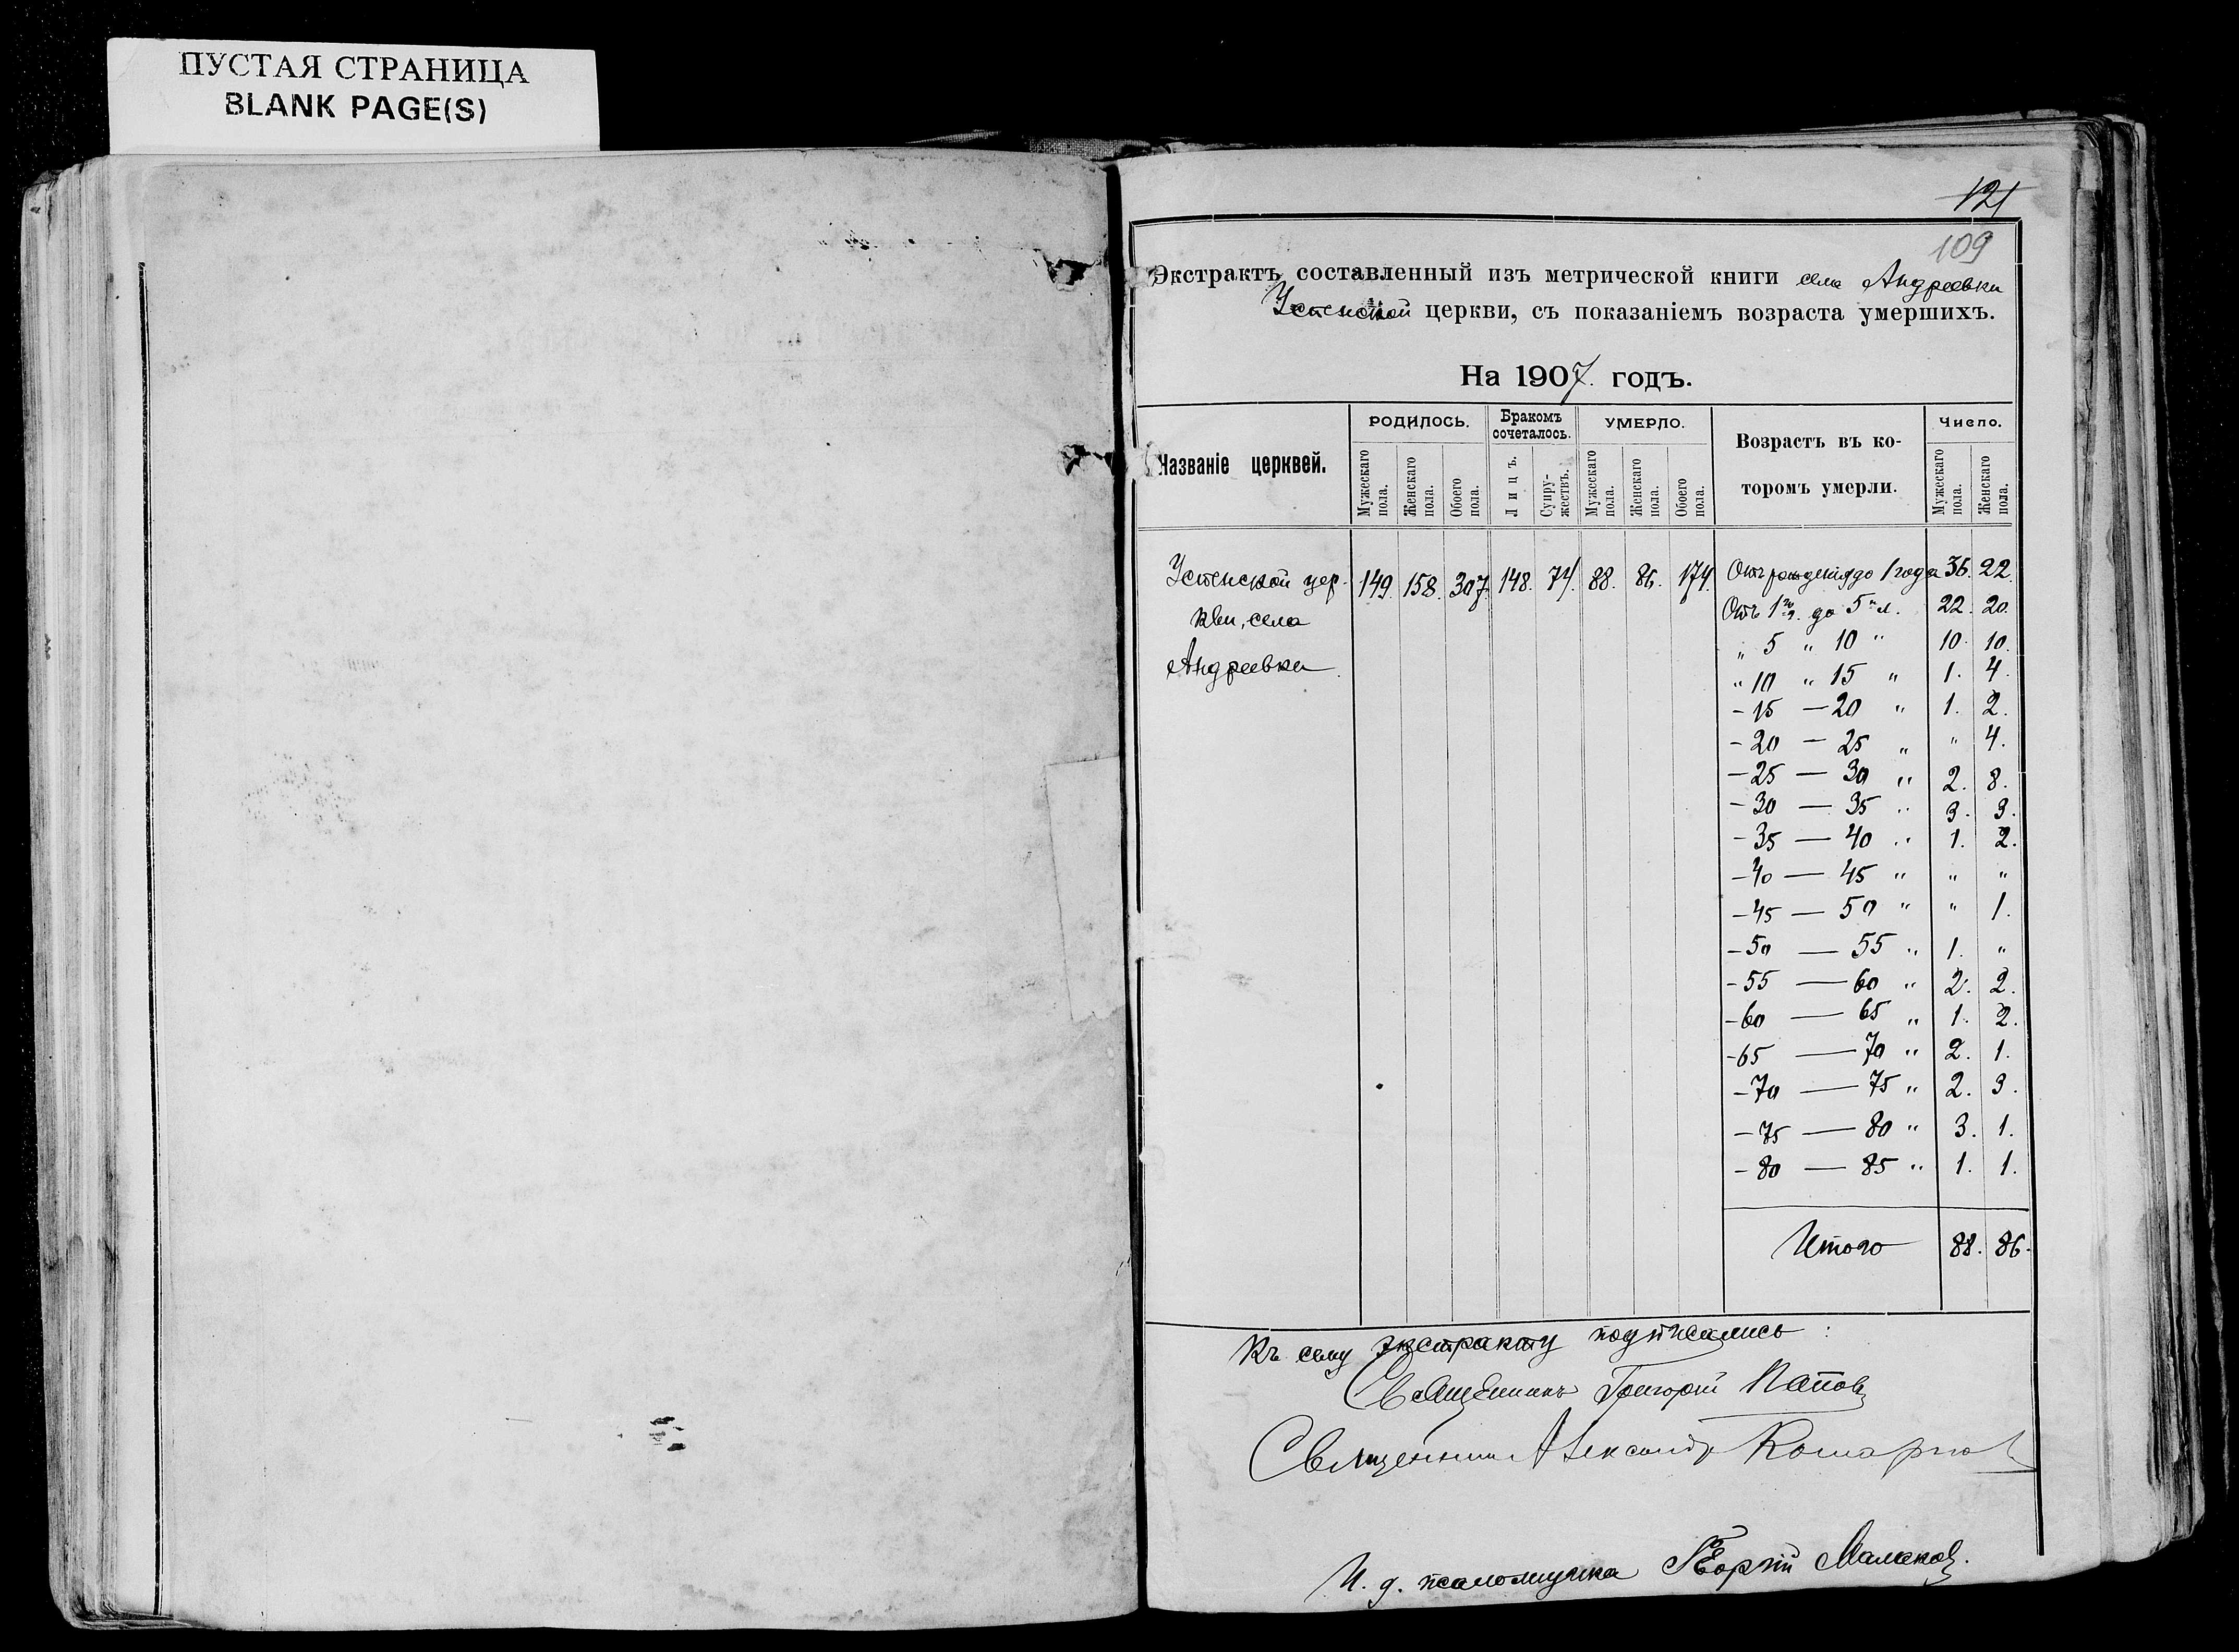 ПУСТАЯ СТРАНИЦА
BLANK PAGE(S)
121
109
Экстрактъ составленный изъ метрической книги села Андреевки
Успенской церкви, съ показаніемъ возраста умершихъ.
На 1907. годъ.
Названіе церквей.
РОДИЛОСЬ. Бракомъ сочеталось. УМЕРЛО. Возрастъ въ ко- Число.
торомъ умерли.
Мужескаго пола. Женскаго пола. Обоего пола. Лицъ. Супру-жествъ. Мужескаго пола. Женскаго пола. Обоего пола. Мужескаго пола. Женскаго пола.
Успенской цер- 149. 158. 307. 148. 74. 88. 86. 174. Отъ рожденія до 1 года 36. 22.
кви, села Отъ 1го г. до 5 л. 22. 20.
„ 5 „ 10 „ 10. 10.
Андреевки „ 10 „ 15 „ 1. 4.
- 15 — 20 „ 1. 2.
- 20 — 25 „ „ 4.
- 25 — 30 „ 2. 8.
- 30 — 35 „ 3. 3.
- 35 — 40 „ 1. 2.
- 40 — 45 „ „ „
- 45 — 50 „ „ 1.
- 50 — 55 „ 1. „
- 55 — 60 „ 2. 2.
- 60 — 65 „ 1. 2.
- 65 — 70 „ 2. 1.
- 70 — 75 „ 2. 3.
- 75 — 80 „ 3. 1.
- 80 — 85 „ 1. 1.
Итого 88. 86.
Къ сему экстракту подписались:
Священникъ Григорій Поповъ
Священникъ Александръ
И. д. псаломщика Георгій